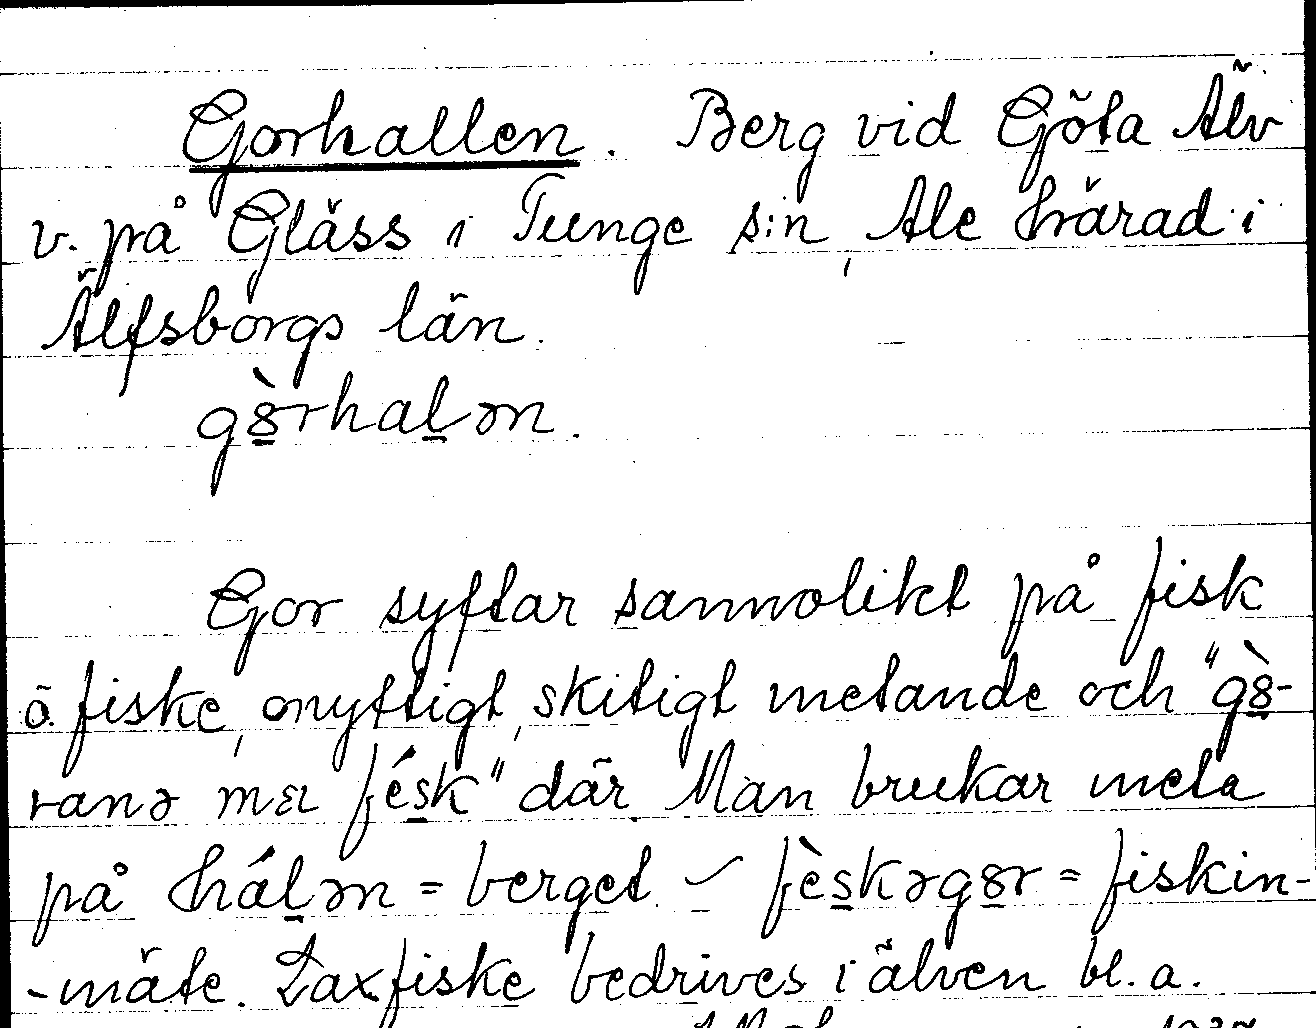 Gorhallen. Berg vid Göta Älv
v. på Gläss i Tunge s:n, Ale härad i
Älfsborgs län.
gȣ̀rhaḻən.
Gor syftar sannolikt på fisk
o. fiske, onyttigt, skitigt metande och "gȣ̀-
ranə mæ fésk" där. Man brukar meta
på háḻən = berget – fèskəgȣr = fiskin-
-mäte. Laxfiske bedrives i älven bl. a.